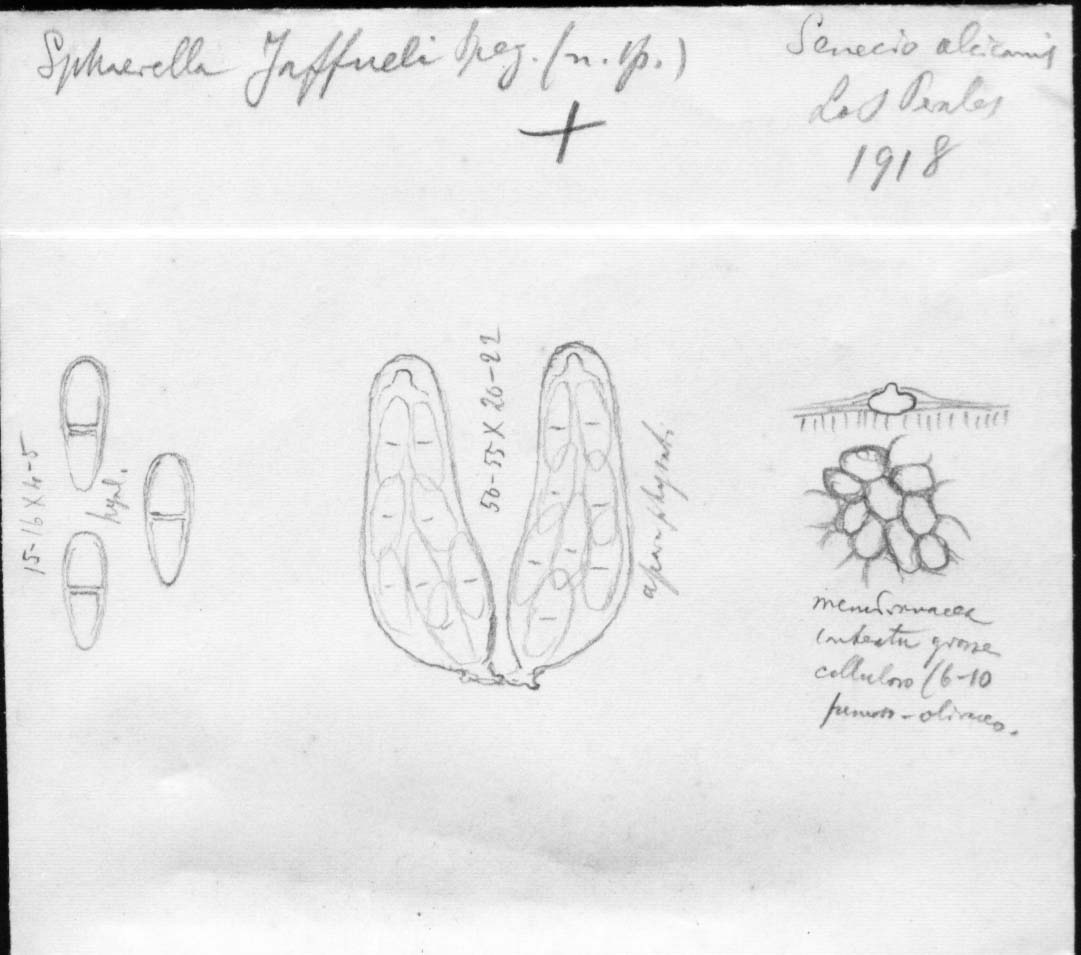 Sphaerella Jaffueli Speg. (n. sp.)
Senecio alcicornis
Los Perales
1918
15-16 X 4-5
hyal.
50-55 X 20-22
aparaphysati.
membranacea
contextu grosse
celluloso (6-10
fumoso-olivaceo.